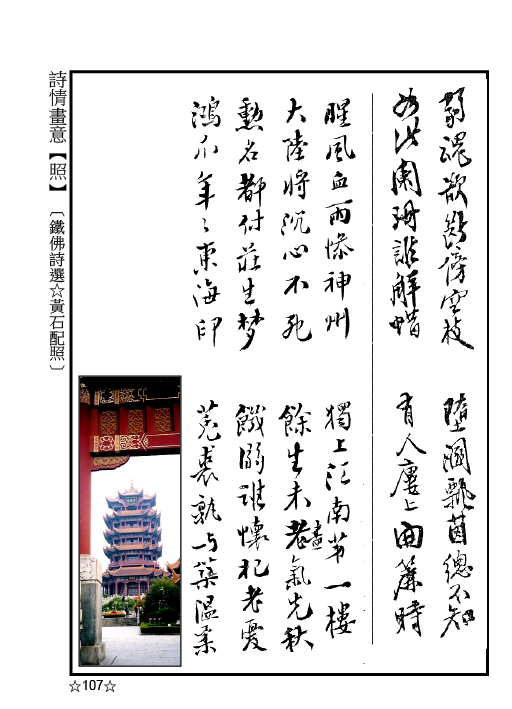 弱魂欲斷傍空枝 墮溷飄茵總不知
如此闌珊誰解惜 有人廔上簾時
腥風血雨慘神州 獨上江南第一樓
大陸將沉心不死 餘生未老氣先秋
勳名都付莊生梦 饑溺誰懷杞老憂
鴻爪年〻東海印 菟裘孰与築溫柔
詩情畫意【照】〔鐵佛詩選☆黃石配照〕
☆107☆